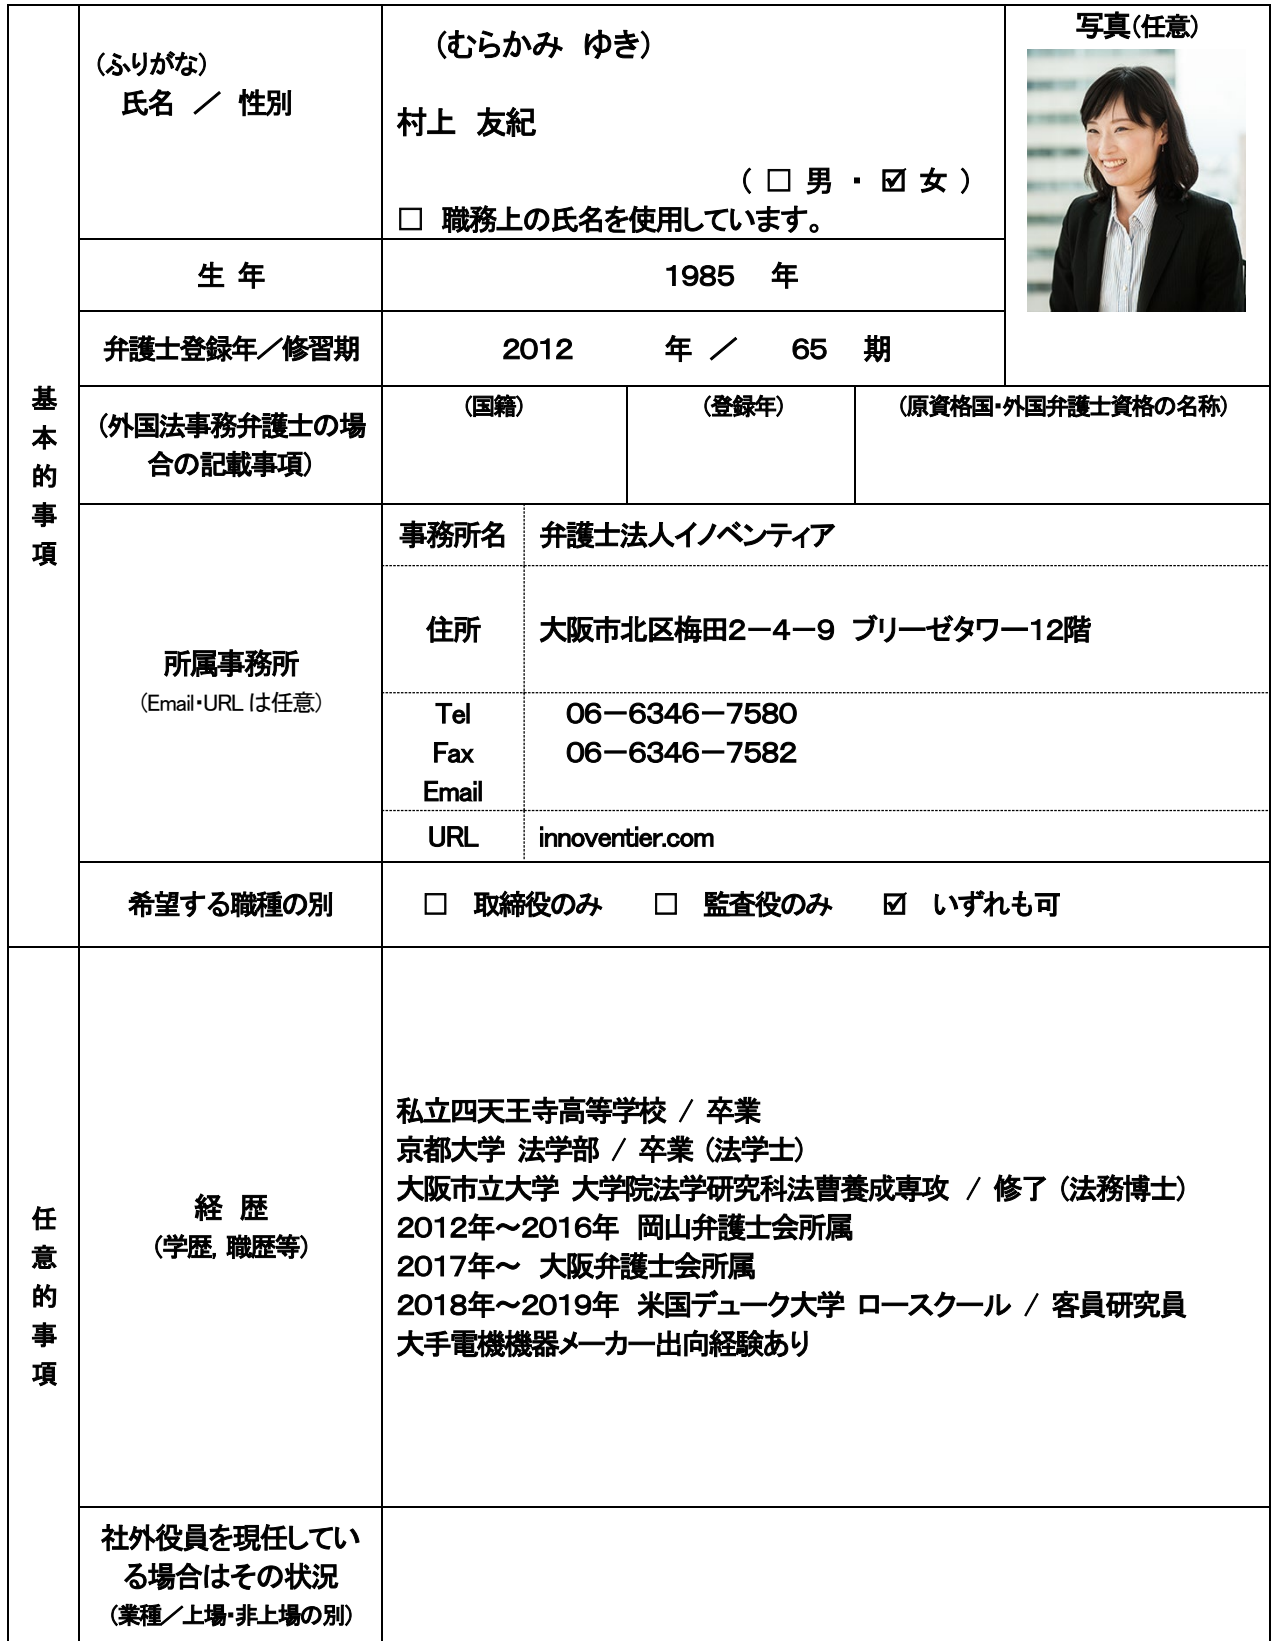 基本的事項
（ふりがな）
氏名　／　性別
（むらかみ　ゆき）
村上　友紀
（ □ 男 ・ ☑ 女 ）
□　職務上の氏名を使用しています。
写真（任意）
生 年
1985　年
弁護士登録年／修習期
2012　　　年 ／　　65　期
（外国法事務弁護士の場
合の記載事項）
（国籍）
（登録年）
（原資格国・外国弁護士資格の名称）
所属事務所
（Email・URL は任意）
事務所名
弁護士法人イノベンティア
住所
大阪市北区梅田２－４－９　ブリーゼタワー１２階
Tel　　06－6346－7580
Fax　　06－6346－7582
Email
URL　innoventier.com
希望する職種の別
□　取締役のみ　　□　監査役のみ　　☑　いずれも可
任意的事項
経　歴
（学歴，職歴等）
私立四天王寺高等学校 / 卒業
京都大学 法学部 / 卒業（法学士）
大阪市立大学 大学院法学研究科法曹養成専攻 / 修了（法務博士）
2012年～2016年　岡山弁護士会所属
2017年～　大阪弁護士会所属
2018年～2019年　米国デューク大学 ロースクール / 客員研究員
大手電機機器メーカー出向経験あり
社外役員を現任してい
る場合はその状況
（業種／上場・非上場の別）